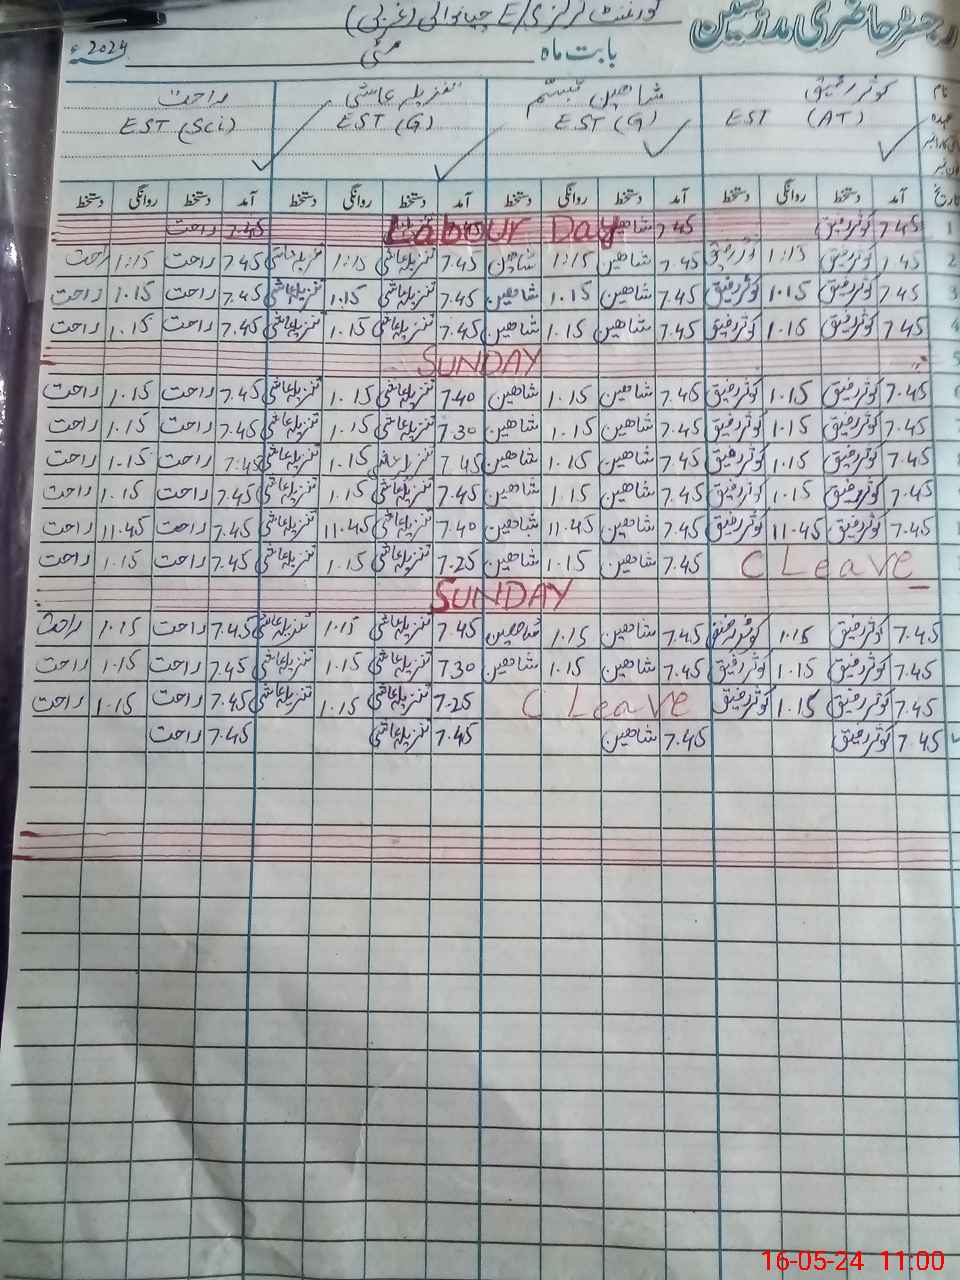 رجسٹر حاضری مدرسین گورنمنٹ گرلز ای/E چیانوالی (غربی)
بابت ماہ مئی 2024ء
نام کوثر رفیق شاہین تبسم تنزیلہ عاشی راحت
عہدہ EST (AT) EST (G) EST (G) EST (Sci)
تاریخ آمد دستخط روانگی دستخط آمد دستخط روانگی دستخط آمد دستخط روانگی دستخط آمد دستخط روانگی دستخط
1 7.45 کوثر رفیق 7.45 شاہین Labour Day 7.45 راحت
2 7.45 کوثر رفیق 1:15 کوثر رفیق 7.45 شاہین 1:15 شاہین 7.45 تنزیلہ عاشی 1:15 تنزیلہ عاشی 7.45 راحت 1:15 راحت
3 7.45 کوثر رفیق 1.15 کوثر رفیق 7.45 شاہین 1.15 شاہین 7.45 تنزیلہ عاشی 1.15 تنزیلہ عاشی 7.45 راحت 1.15 راحت
4 7.45 کوثر رفیق 1.15 کوثر رفیق 7.45 شاہین 1.15 شاہین 7.45 تنزیلہ عاشی 1.15 تنزیلہ عاشی 7.45 راحت 1.15 راحت
5 SUNDAY
7.45 کوثر رفیق 1.15 کوثر رفیق 7.45 شاہین 1.15 شاہین 7.40 تنزیلہ عاشی 1.15 تنزیلہ عاشی 7.45 راحت 1.15 راحت
7.45 کوثر رفیق 1.15 کوثر رفیق 7.45 شاہین 1.15 شاہین 7.30 تنزیلہ عاشی 1.15 تنزیلہ عاشی 7.45 راحت 1.15 راحت
7.45 کوثر رفیق 1.15 کوثر رفیق 7.45 شاہین 1.15 شاہین 7.45 تنزیلہ عاشی 1.15 تنزیلہ عاشی 7.45 راحت 1.15 راحت
7.45 کوثر رفیق 1.15 کوثر رفیق 7.45 شاہین 1.15 شاہین 7.45 تنزیلہ عاشی 1.15 تنزیلہ عاشی 7.45 راحت 1.15 راحت
7.45 کوثر رفیق 11.45 کوثر رفیق 7.45 شاہین 11.45 شاہین 7.40 تنزیلہ عاشی 11.45 تنزیلہ عاشی 7.45 راحت 11.45 راحت
C Leave 7.45 شاہین 1.15 شاہین 7.25 تنزیلہ عاشی 1.15 تنزیلہ عاشی 7.45 راحت 1.15 راحت
SUNDAY
7.45 کوثر رفیق 1.15 کوثر رفیق 7.45 شاہین 1.15 شاہین 7.45 تنزیلہ عاشی 1.15 تنزیلہ عاشی 7.45 راحت 1.15 راحت
7.45 کوثر رفیق 1.15 کوثر رفیق 7.45 شاہین 1.15 شاہین 7.30 تنزیلہ عاشی 1.15 تنزیلہ عاشی 7.45 راحت 1.15 راحت
7.45 کوثر رفیق 1.15 کوثر رفیق C Leave 7.25 تنزیلہ عاشی 1.15 تنزیلہ عاشی 7.45 راحت 1.15 راحت
7.45 کوثر رفیق 7.45 شاہین 7.45 تنزیلہ عاشی 7.45 راحت
16-05-24 11:00